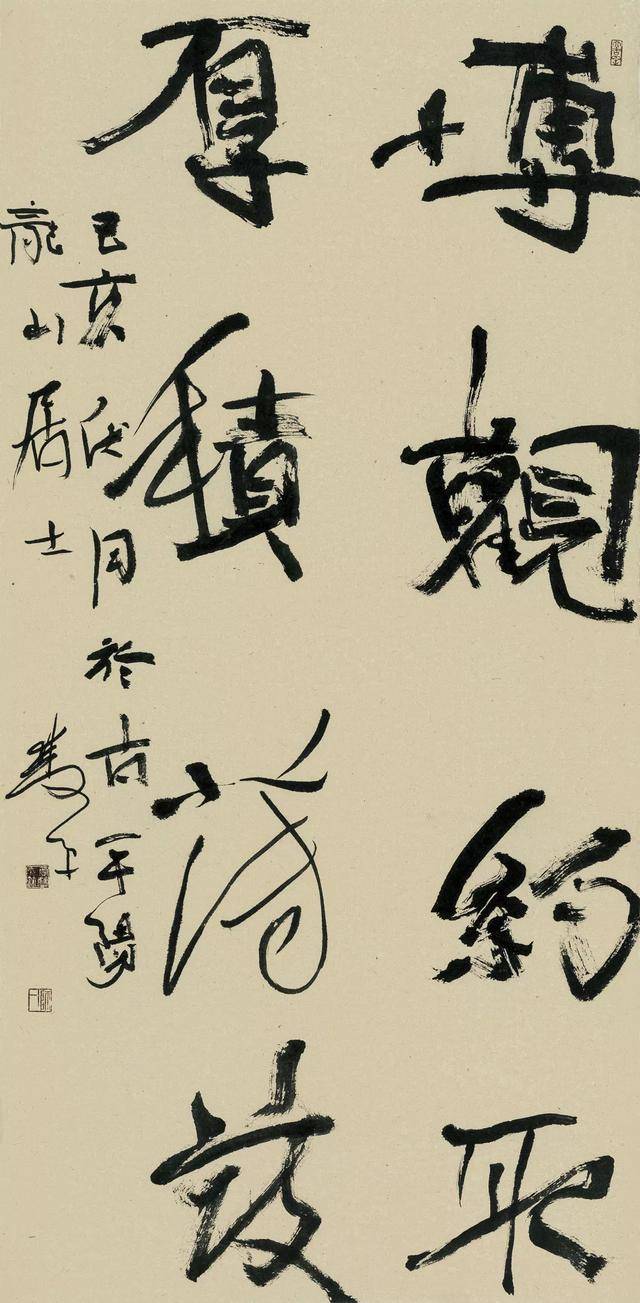 博觀約取
厚積薄發
己亥伏月於古平陽
龍山居士